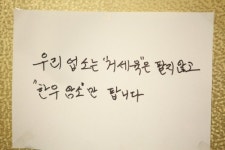 우리 업소는 "거세육"은 팔지않고
"한우 암소"만 팝니다